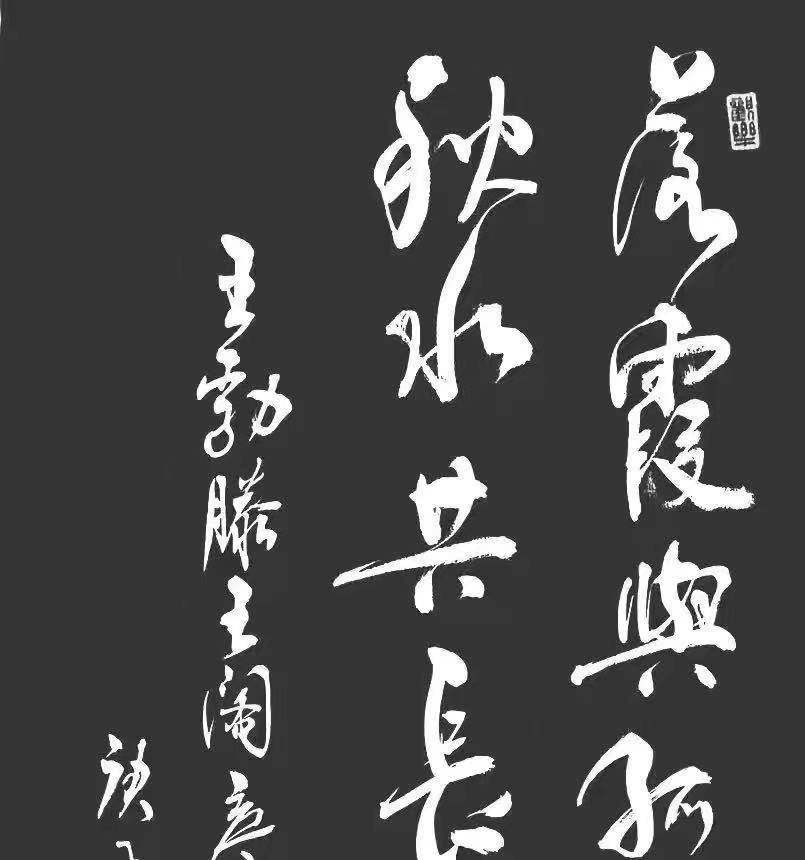 落霞與孤
秋水共長
王勃滕王閣